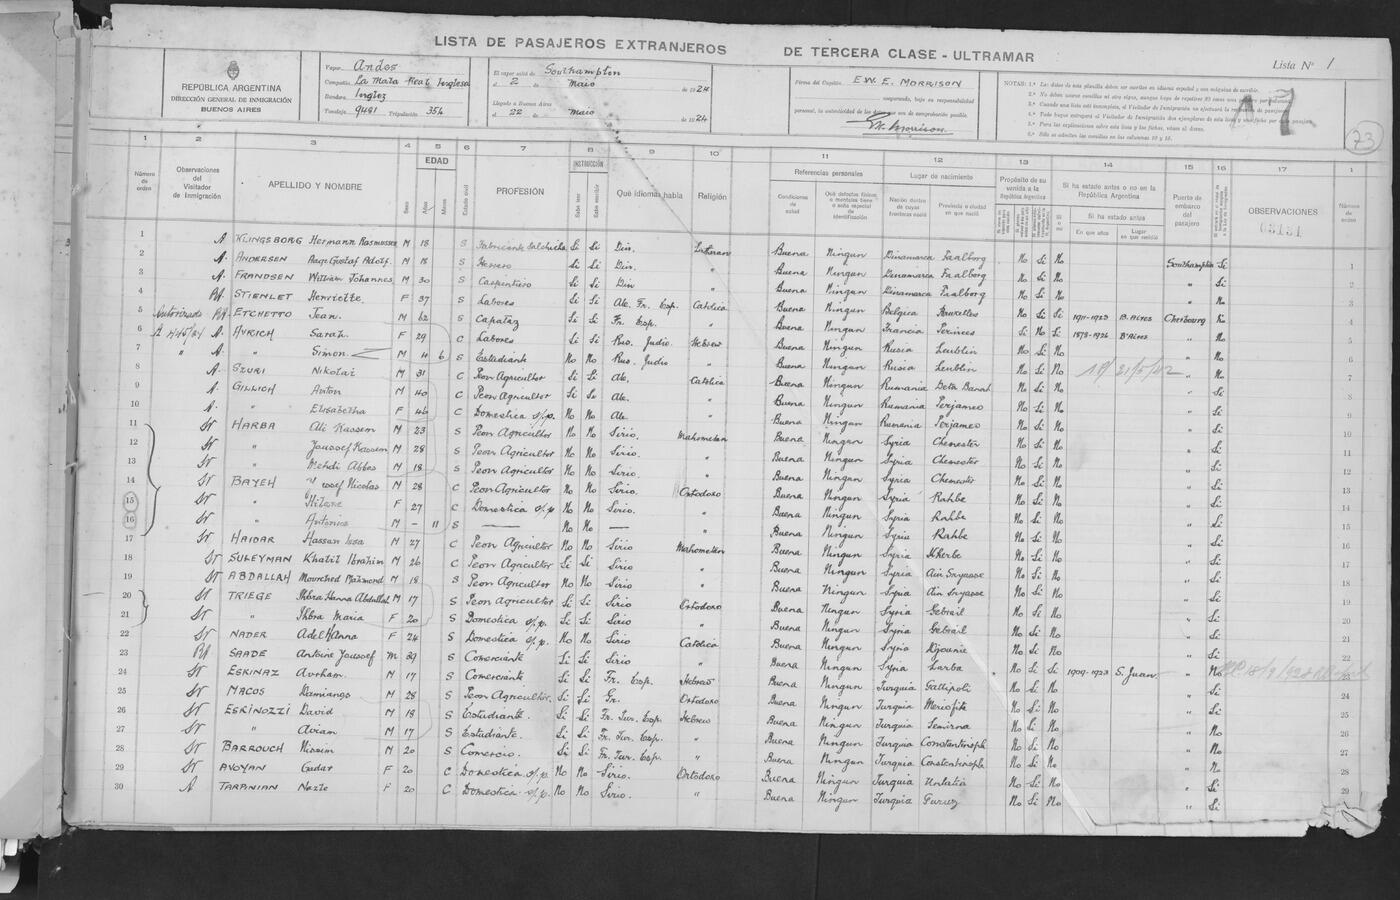 LISTA DE PASAJEROS EXTRANJEROS DE TERCERA CLASE - ULTRAMAR
Lista N° 1
REPÚBLICA ARGENTINA
DIRECCIÓN GENERAL DE INMIGRACIÓN
BUENOS AIRES
Vapor Andes
Compañía La Mala Real Inglesa
Bandera Inglez
Tonelaje 9481 Tripulación 354
El vapor salió de Southampton
el 2 de Maio de 1924
Llegado a Buenos Aires
el 22 de Maio de 1924
Firma del Capitán E.W. E. MORRISON
asegurando, bajo su responsabilidad
personal, la autenticidad de los datos que son de comprobación posible
E.W. Morrison
NOTAS: 1.ª Los datos de esta planilla deben ser escritos en idioma español y con máquina de escribir.
47
73
1 2 3 4 5 6 7 8 9 10 11 12 13 14 15 16 17 1
Número de orden
Observaciones del Visitador de Inmigración
APELLIDO Y NOMBRE
Sexo
EDAD
Años
Meses
Estado civil
PROFESIÓN
INSTRUCCIÓN
Sabe leer
Sabe escribir
Qué idiomas habla
Religión
Referencias personales
Condiciones de salud
Qué defectos físicos o mentales tiene o seña especial de identificación
Lugar de nacimiento
Nación dentro de cuyas fronteras nació
Provincia o ciudad en que nació
Propósito de su venida a la República Argentina
Si ha estado antes o no en la República Argentina
Si o no
Si ha estado antes
En que años
Lugar en que residió
Puerto de embarco del pasajero
OBSERVACIONES
03131
Número de orden
1 A KLINGSBORG Hermann Rasmussen M 18 S Fabricante Salchicha Si Si Din. Lutheran Buena Ningun Dinamarca Faalborg No Si No Southampton Si
2 A. ANDERSEN Aage Gustaf Adolf. M 18 S Herrero Si Si Din. " Buena Ningun Dinamarca Faalborg No Si No " Si
3 A. FRANDSEN William Johannes M 30 S Carpintiero Si Si Din " Buena Ningun Dinamarca Faalborg No Si No " Si
4 RA. STIENLET Henriette. F 37 S Labores Si Si Ale. Fr. Esp. Catolica Buena Ningun Belgica Bruxelles No Si Si 1911-1923 B. Aires Cherbourg No
5 Autorizado RA. ETCHETTO Jean. M 62 S Capataz Si Si Fr. Esp. " Buena Ningun Francia Perinees Si No Si 1873-1926 B'Aires " No
6 A. AYRICH Sarah. F 29 C Labores Si Si Rus. Judio. Hebrew Buena Ningun Rusia Leublin No Si No " No
7 " A. " Simon. M 4 6 S Estudiante No No Rus. Judio " Buena Ningun Rusia Leublin No Si No " No
8 A. SZURI Nikolai M 31 C Peon Agricultor Si Si Ale. Catolica Buena Ningun Rumania Beta Banat No Si No " Si
9 A. GILLICH Anton M 40 C Peon Agricultor Si Si Ale. " Buena Ningun Rumania Perjameo No Si No " Si
10 A. " Elisabetha F 46 C Domestica s/p. No No Ale. " Buena Ningun Rumania Perjameo No Si No " Si
11 Sr HARBA Ali Kassem M 23 S Peon Agricultor No No Sirio. Mahometan Buena Ningun Syria Chemester No Si No " Si
12 Sr " Youssef Kassem M 28 S Peon Agricultor No No Sirio. " Buena Ningun Syria Chemester No Si No " Si
13 Sr " Mehdi Abbas M 18 S Peon Agricultor No No Sirio. " Buena Ningun Syria Chemester No Si No " Si
14 Sr BAYEH Yussef Nicolas M 28 C Peon Agricultor No No Sirio. Ortodoxo Buena Ningun Syria Rahbe No Si No " Si
15 Sr " Helene F 27 C Domestica s/p No No Sirio. " Buena Ningun Syria Rahbe No Si No " Si
16 Sr " Antonios M - 11 S — No No — " Buena Ningun Syria Rahbe No Si No " Si
17 Sr HAIDAR Hassan Issa M 27 C Peon Agricultor No No Sirio Mahometan Buena Ningun Syria Kherbe No Si No " Si
18 Sr SULEYMAN Khalil Ibrahim M 26 C Peon Agricultor Si Si Sirio " Buena Ningun Syria Ain Syasse No Si No " Si
19 Sr ABDALLAH Mourched Mahmoud M 18 S Peon Agricultor No No Sirio " Buena Ningun Syria Ain Syasse No Si No " Si
20 Sr TRIEGE Ikbra Hanna Abdullah M 17 S Peon Agricultor Si Si Sirio Ortodoxo Buena Ningun Syria Gebrail No Si No " Si
21 Sr " Ikbra Maria F 20 S Domestica s/p. Si Si Sirio " Buena Ningun Syria Gebrail No Si No " Si
22 Sr NADER Adel Hanna F 24 S Domestica s/p. No No Sirio Catolica Buena Ningun Syria Djounie No Si No " Si
23 RA SAADE Antoine Youssef M 39 S Comerciante Si Si Sirio " Buena Ningun Syria Zarba No Si Si 1909-1923 S. Juan. " No
24 Sr ESKINAZ Avrham. M 17 S Comerciante Si Si Fr. Esp. Hebrew Buena Ningun Turquia Gallipoli No Si No " Si
25 Sr MACOS Damianos M 28 S Peon Agricultor. Si Si Gr. Ortodoxo Buena Ningun Turquia Meriofite No Si No " Si
26 Sr ESKINOZZI David M 18 S Estudiante. Si Si Fr. Tur. Esp. Hebreo Buena Ningun Turquia Semirna No Si No " Si
27 Sr " Aviam M 17 S Estudiante. Si Si Fr. Tur. Esp. " Buena Ningun Turquia Constantinople No Si No " Si
28 Sr BARROUCH Nissim M 20 S Comercio. Si Si Fr. Tur. Esp. " Buena Ningun Turquia Constantinople No Si No " No
29 Sr AVOYAN Gadar F 20 C Domestica s/p. No No Sirio. Ortodoxo Buena Ningun Turquia No Si No " Si
30 A TARANIAN Nazte F 20 C Domestica s/p. No No Sirio. " Buena Ningun Turquia No Si No " Si